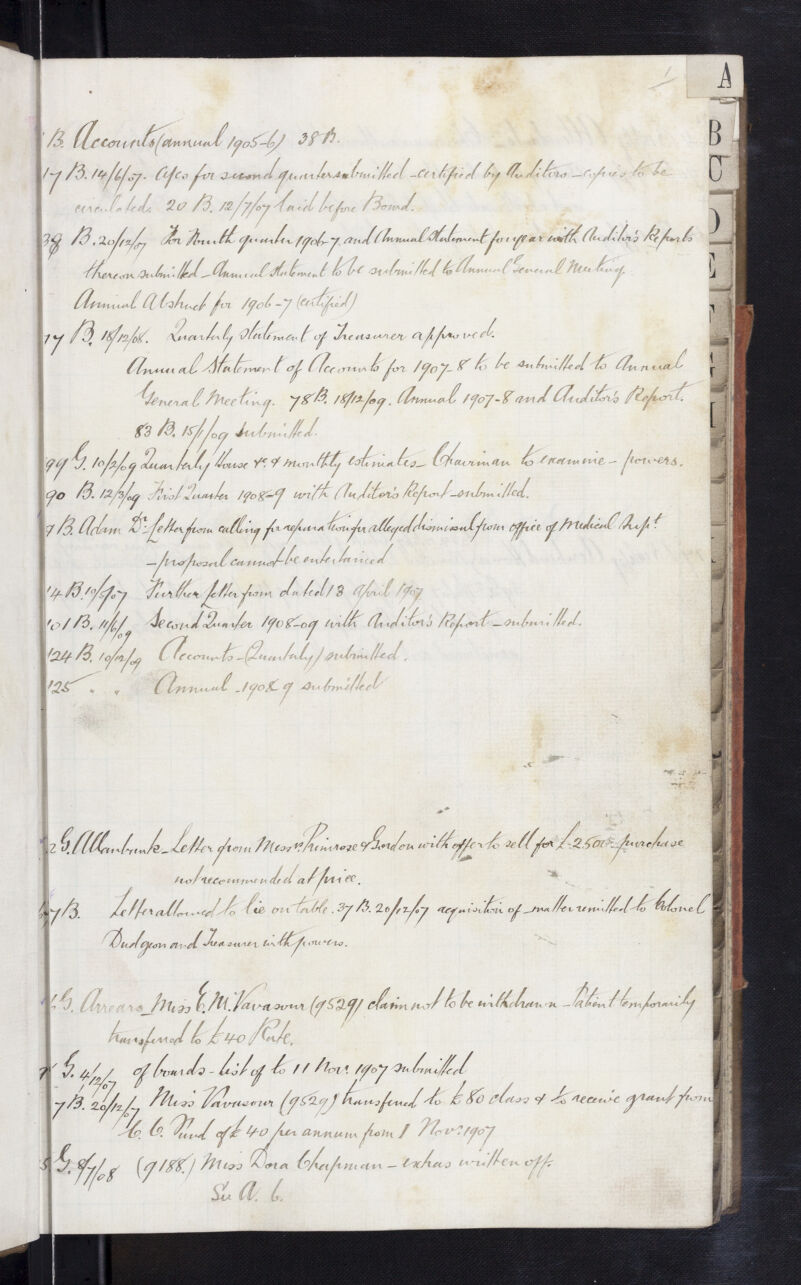 1
A
B
C
D
E
B. Accounts (annual 1905-6) 38 B.
17 B. 14/6/07. A/cs for second quarter submitted - certified by Auditors - copies to be
circulated. 20 B. 12/7/07 laid before Board.
38 B. 20/12/07 For Fourth quarter 1906-7 and Annual Statement for year with Auditor's Reports
thereon submitted - Annual Statement to be submitted to Annual General Meeting
Annual Abstract for 1906-7 (certified)
77 B. 18/12/08. Quarterly Statement of Treasurer approved.
Annual Statement of Accounts for 1907-8 to be submitted to Annual
General Meeting. 78 B. 18/12/09. Annual 1907-8 and Auditor's Report.
83 B. 15/1/09 submitted.
99 G. 10/2/09 Quarterly House &c. & monthly estimates - Chairman to examine - powers.
90 B. 12/3/09 First Quarter 1908-9 with Auditor's Report - submitted.
9 B. Adam Dr. Letter from calling for reparation for alleged dismissal from office of Medical Supt.
- proposal cannot be entertained
14 B. 10/5/07 Further letter from dated 13 April 1907
101 B. 11/6/09 Second Quarter 1908-09 with Auditor's Report - submitted.
124 B. 10/12/09 Accounts - (Quarterly) submitted.
125 " " Annual - 1908-9 submitted
2 G. Allanbank - Letter from Messrs. Primrose & Gordon with offer to sell for £2500 - purchase
not recommended at price.
7 B. Letter allowed to lie on table. 37 B. 20/12/07 acquisition of - matter remitted to Colonel
Dudgeon and Treasurer with powers.
G. Arrears - Miss E. M. Vavasour (9529) claim not to be withdrawn - Patient temporarily
transferred to £40 Rate.
G. 4/12/07 of boards - list of to 11 Novr. 1907 submitted
7 B. 20/12/07 Miss Vavasour (9529) transferred to £80 class & to receive grant from
C. C. Fund of £40 per annum from 1 Novr. 1907
G. 8/7/08 (9188.) Miss Dora Chapman - extras written off.
See A. 6.